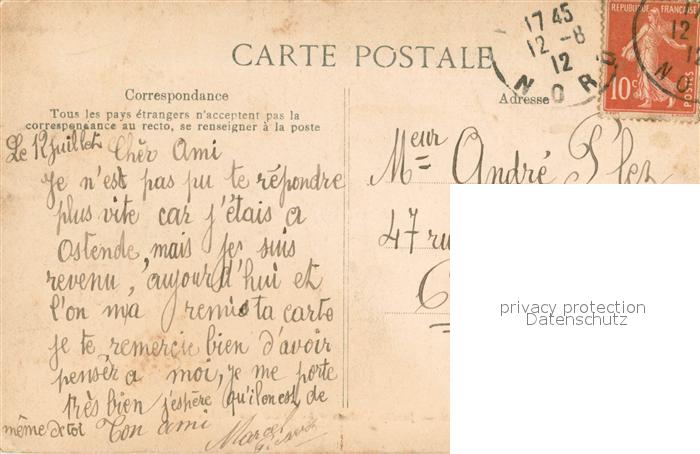 17 45
12 - 8
12
NORD
REPUBLIQUE FRANÇAISE
10c
POSTES
12
12
NO
CARTE POSTALE
Correspondance
Tous les pays étrangers n'acceptent pas la
correspondance au recto, se renseigner à la poste
Adresse
Le 12 juillet Chèr Ami
Je n'est pas pu te répondre
plus vite car j'étais a
Ostende, mais je suis
revenu, aujourd'hui et
l'on m'a remis ta carte
je te remercie bien d'avoir
pensér a moi, je me porte
très bien j'espère qu'il en est de
même de toi Ton ami
Marcel
Meur André
47 ru
privacy protection
Datenschutz